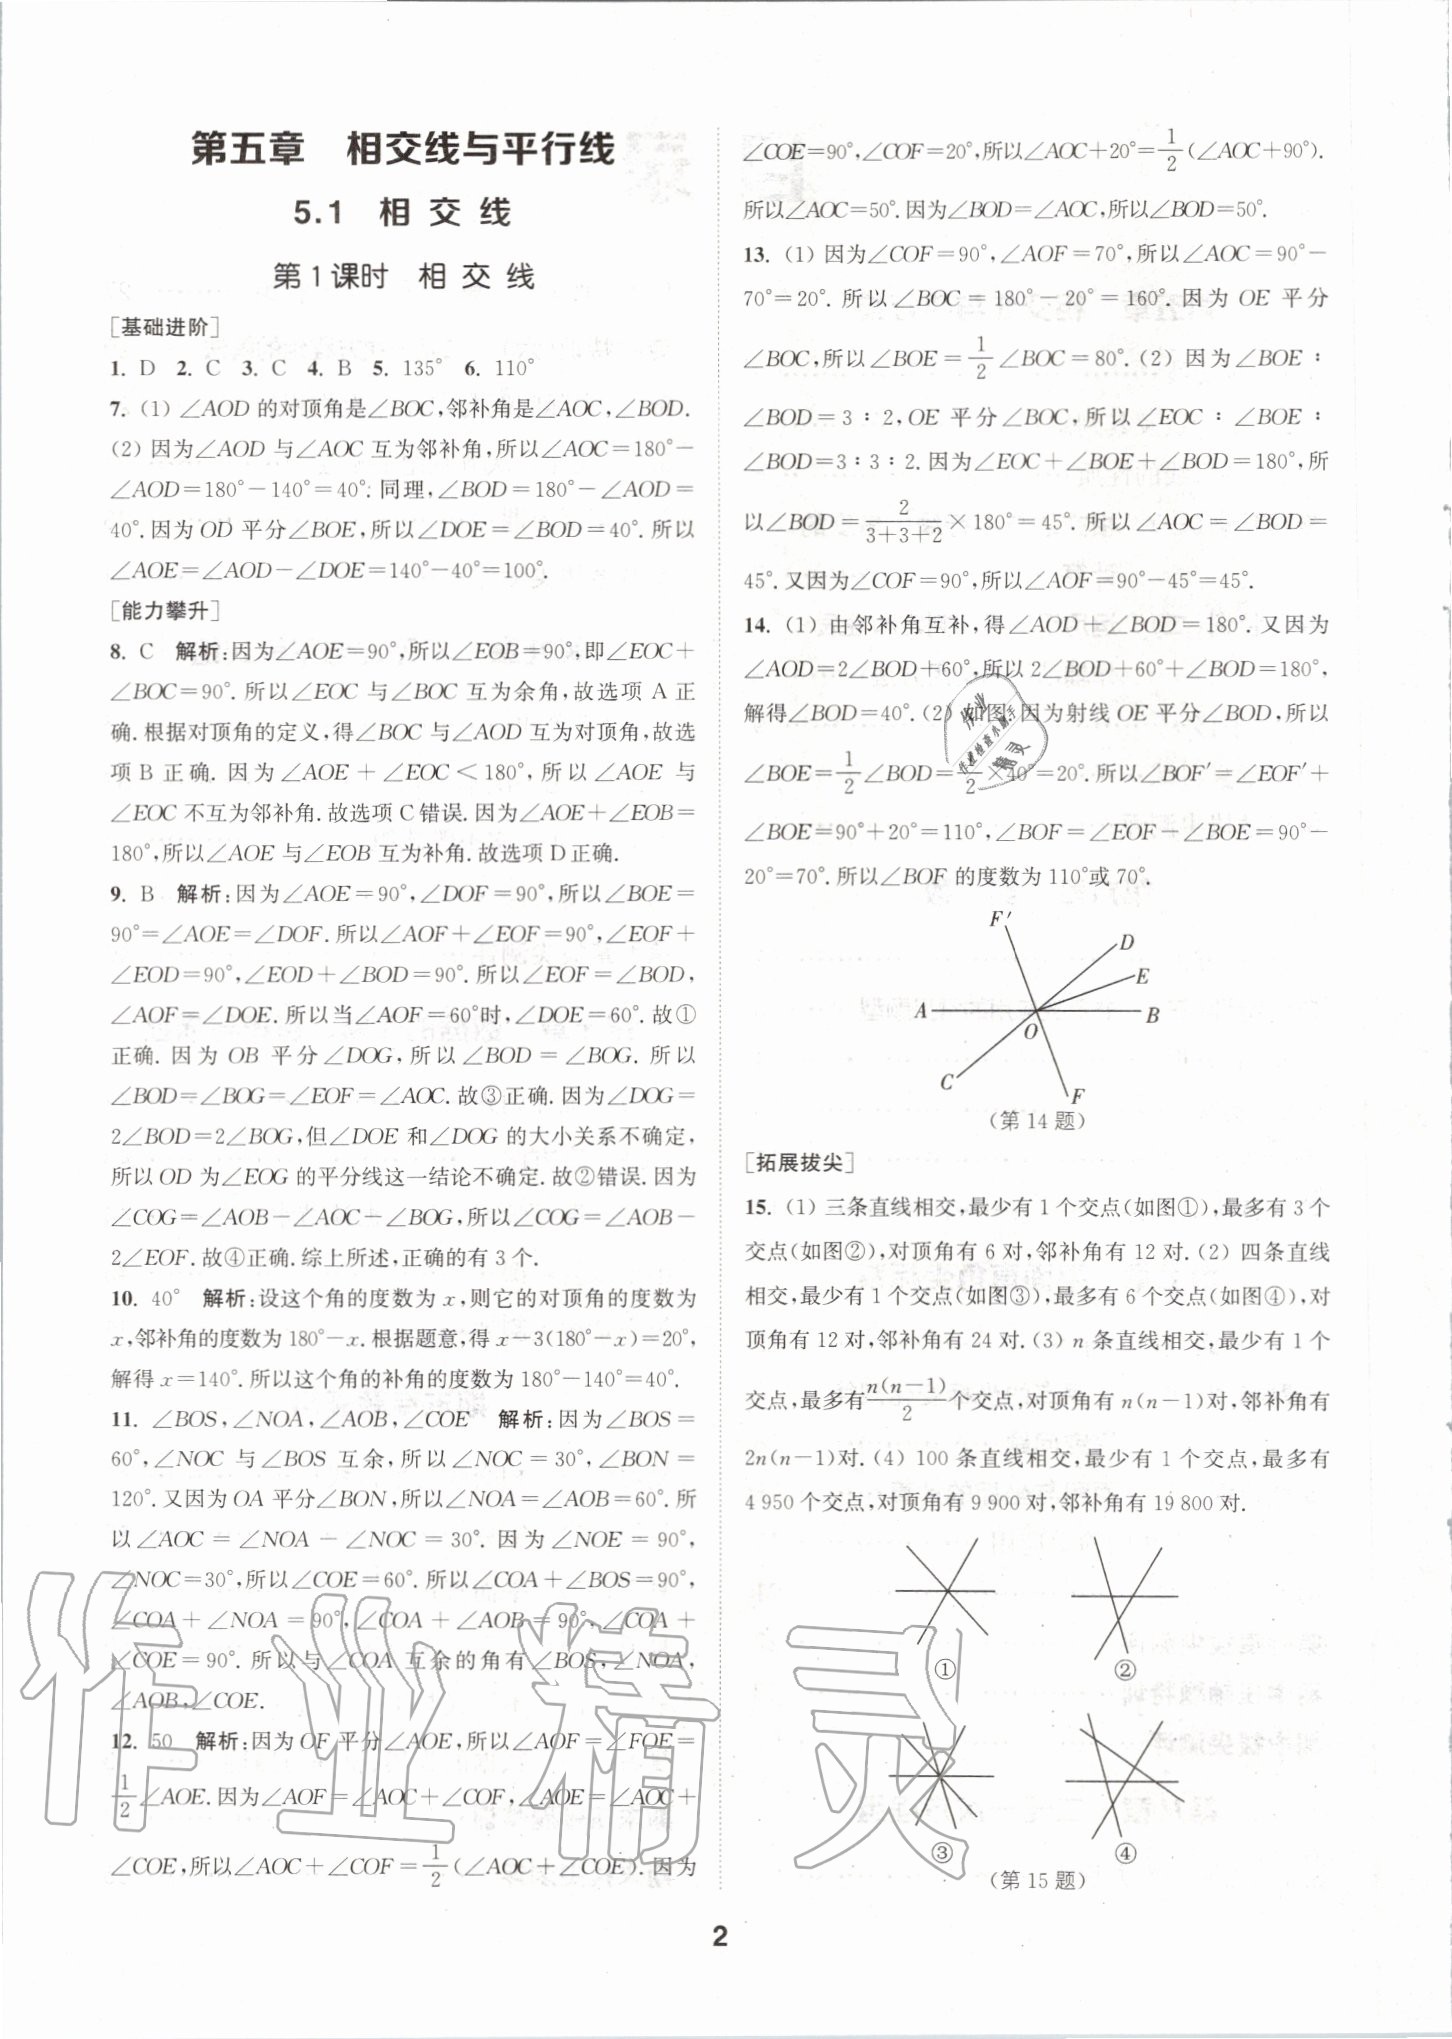 第五章 相交线与平行线
5.1 相交线
第1课时 相交线
[基础进阶]
1. D 2. C 3. C 4. B 5. 135° 6. 110°
7. (1) ∠AOD 的对顶角是∠BOC,邻补角是∠AOC,∠BOD.
(2) 因为∠AOD 与∠AOC 互为邻补角,所以∠AOC=180°-
∠AOD=180°-140°=40°. 同理,∠BOD=180°-∠AOD=
40°. 因为 OD 平分∠BOE,所以∠DOE=∠BOD=40°. 所以
∠AOE=∠AOD-∠DOE=140°-40°=100°.
[能力攀升]
8. C 解析:因为∠AOE=90°,所以∠EOB=90°,即∠EOC+
∠BOC=90°. 所以∠EOC 与∠BOC 互为余角,故选项 A 正
确. 根据对顶角的定义,得∠BOC 与∠AOD 互为对顶角,故选
项 B 正确. 因为∠AOE+∠EOC<180°,所以∠AOE 与
∠EOC 不互为邻补角. 故选项 C 错误. 因为∠AOE+∠EOB=
180°,所以∠AOE 与∠EOB 互为补角. 故选项 D 正确.
9. B 解析:因为∠AOE=90°,∠DOF=90°,所以∠BOE=
90°=∠AOE=∠DOF. 所以∠AOF+∠EOF=90°,∠EOF+
∠EOD=90°,∠EOD+∠BOD=90°. 所以∠EOF=∠BOD,
∠AOF=∠DOE. 所以当∠AOF=60°时,∠DOE=60°. 故①
正确. 因为 OB 平分∠DOG,所以∠BOD=∠BOG. 所以
∠BOD=∠BOG=∠EOF=∠AOC. 故③正确. 因为∠DOG=
2∠BOD=2∠BOG,但∠DOE 和∠DOG 的大小关系不确定,
所以 OD 为∠EOG 的平分线这一结论不确定. 故②错误. 因为
∠COG=∠AOB-∠AOC-∠BOG,所以∠COG=∠AOB-
2∠EOF. 故④正确. 综上所述,正确的有 3 个.
10. 40° 解析:设这个角的度数为 x,则它的对顶角的度数为
x,邻补角的度数为 180°-x. 根据题意,得 x-3(180°-x)=20°,
解得 x=140°. 所以这个角的补角的度数为 180°-140°=40°.
11. ∠BOS,∠NOA,∠AOB,∠COE 解析:因为∠BOS=
60°,∠NOC 与∠BOS 互余,所以∠NOC=30°,∠BON=
120°. 又因为 OA 平分∠BON,所以∠NOA=∠AOB=60°. 所
以∠AOC=∠NOA-∠NOC=30°. 因为∠NOE=90°,
∠NOC=30°,所以∠COE=60°. 所以∠COA+∠BOS=90°,
∠COA+∠NOA=90°,∠COA+∠AOB=90°,∠COA+
∠COE=90°. 所以与∠COA 互余的角有∠BOS,∠NOA,
∠AOB,∠COE.
12. 50 解析:因为 OF 平分∠AOE,所以∠AOF=∠FOE=
1/2∠AOE. 因为∠AOF=∠AOC+∠COF,∠AOE=∠AOC+
∠COE,所以∠AOC+∠COF=1/2(∠AOC+∠COE). 因为
∠COE=90°,∠COF=20°,所以∠AOC+20°=1/2(∠AOC+90°).
所以∠AOC=50°. 因为∠BOD=∠AOC,所以∠BOD=50°.
13. (1) 因为∠COF=90°,∠AOF=70°,所以∠AOC=90°-
70°=20°. 所以∠BOC=180°-20°=160°. 因为 OE 平分
∠BOC,所以∠BOE=1/2∠BOC=80°. (2) 因为∠BOE∶
∠BOD=3∶2,OE 平分∠BOC,所以∠EOC∶∠BOE∶
∠BOD=3∶3∶2. 因为∠EOC+∠BOE+∠BOD=180°,所
以∠BOD=2/(3+3+2)×180°=45°. 所以∠AOC=∠BOD=
45°. 又因为∠COF=90°,所以∠AOF=90°-45°=45°.
14. (1) 由邻补角互补,得∠AOD+∠BOD=180°. 又因为
∠AOD=2∠BOD+60°,所以 2∠BOD+60°+∠BOD=180°,
解得∠BOD=40°. (2) 如图,因为射线 OE 平分∠BOD,所以
∠BOE=1/2∠BOD=1/2×40°=20°. 所以∠BOF′=∠EOF′+
∠BOE=90°+20°=110°,∠BOF=∠EOF-∠BOE=90°-
20°=70°. 所以∠BOF 的度数为 110°或 70°.
F′
D
E
A
B
O
C
F
(第 14 题)
[拓展拔尖]
15. (1) 三条直线相交,最少有 1 个交点(如图①),最多有 3 个
交点(如图②),对顶角有 6 对,邻补角有 12 对. (2) 四条直线
相交,最少有 1 个交点(如图③),最多有 6 个交点(如图④),对
顶角有 12 对,邻补角有 24 对. (3) n 条直线相交,最少有 1 个
交点,最多有n(n-1)/2个交点,对顶角有 n(n-1)对,邻补角有
2n(n-1)对. (4) 100 条直线相交,最少有 1 个交点,最多有
4 950 个交点,对顶角有 9 900 对,邻补角有 19 800 对.
①
②
③
④
(第 15 题)
作业精灵
2